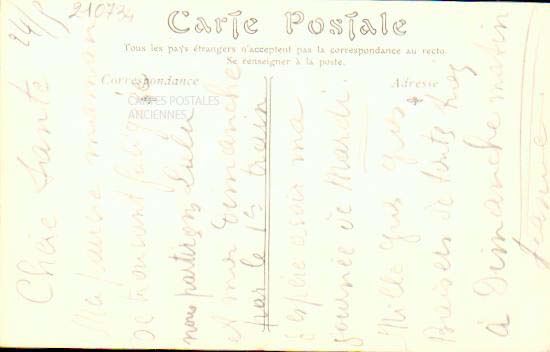 210734
Carte Postale
Tous les pays étrangers n'acceptent pas la correspondance au recto.
Se renseigner à la poste.
Correspondance
Adresse
CARTES POSTALES
ANCIENNES
24/8
Chère Tante
Ma pauvre maman
se trouvant fatiguée
nous partirons Lulu
et moi Dimanche
par le 1er train
j'espère avoir ma
journée de Mardi.
Mille gros gros
Baisers de toutes trois
à Dimanche matin
Jeanne